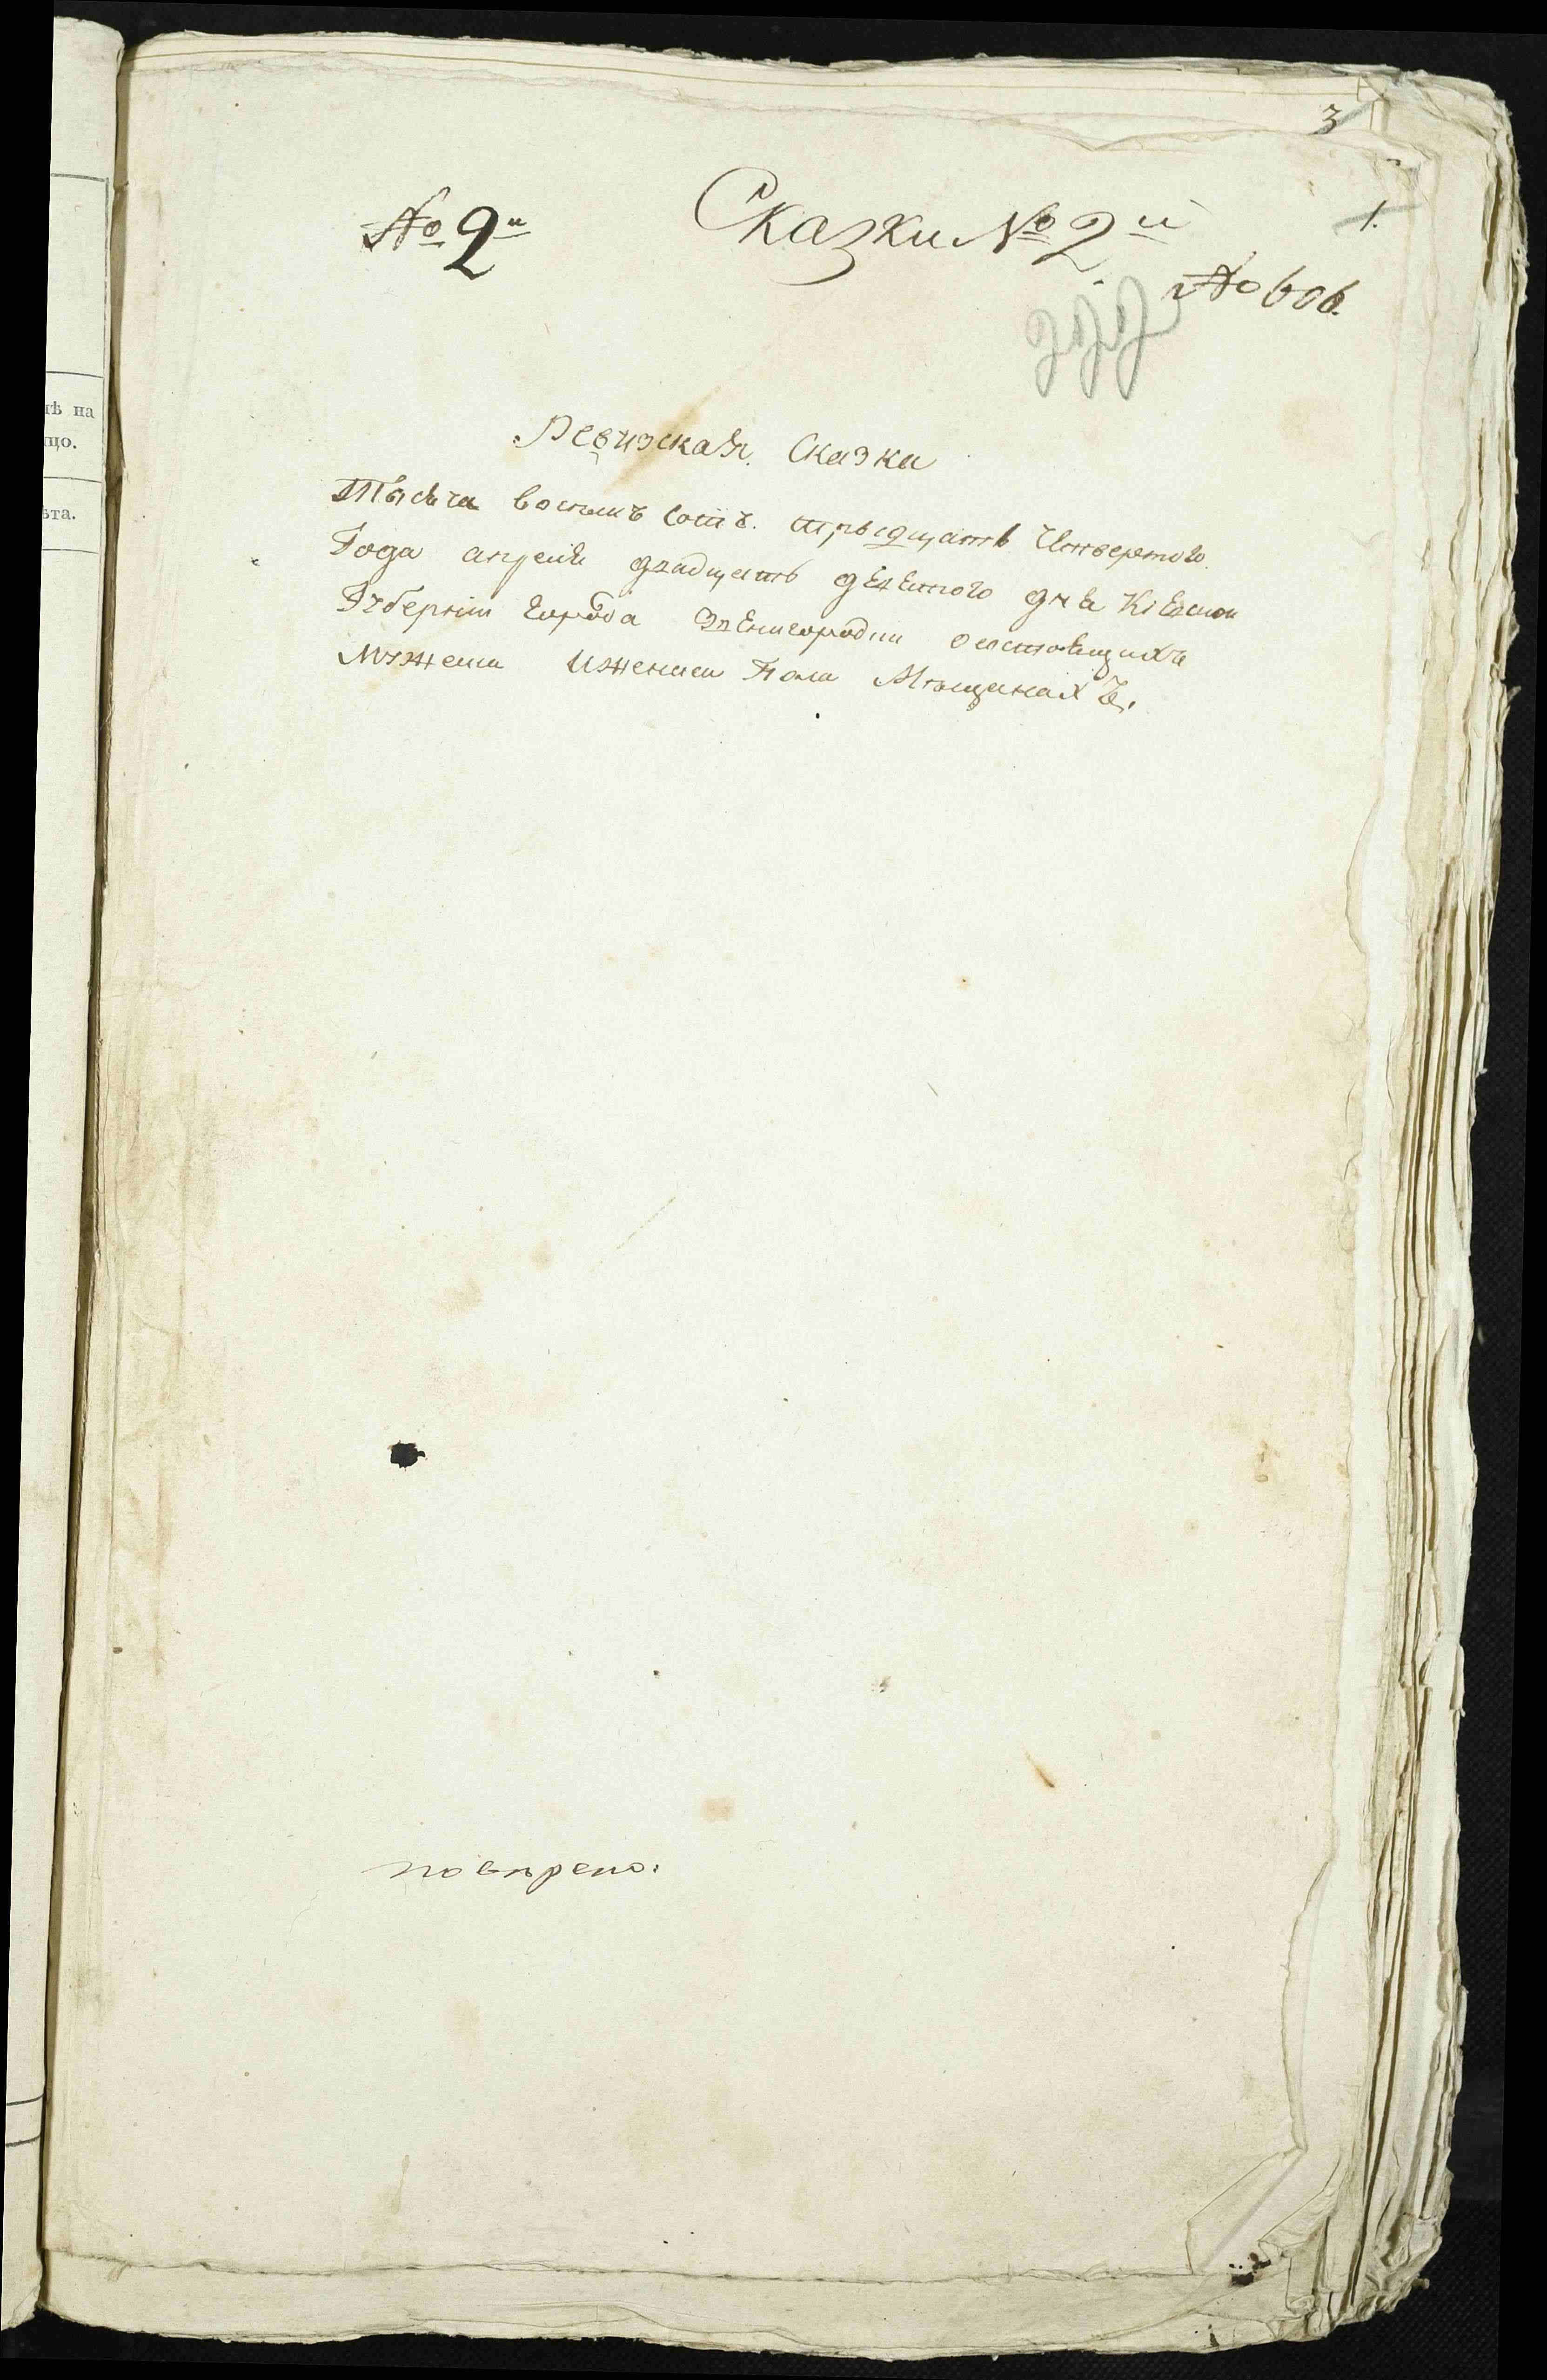 3
1.
№ 2й
Сказки № 2й
№ 606.
222
Ревизская Сказка
Тысяча восемъ сотъ трыдцать Четвертого
Года апреля двадцать девятого дня Кіевской
Губерніи города Звенигородки о состоящихъ
Мужеска Иженска Пола Мѣщанахъ,
повѣрено:
тѣ на
що.
ѣта.